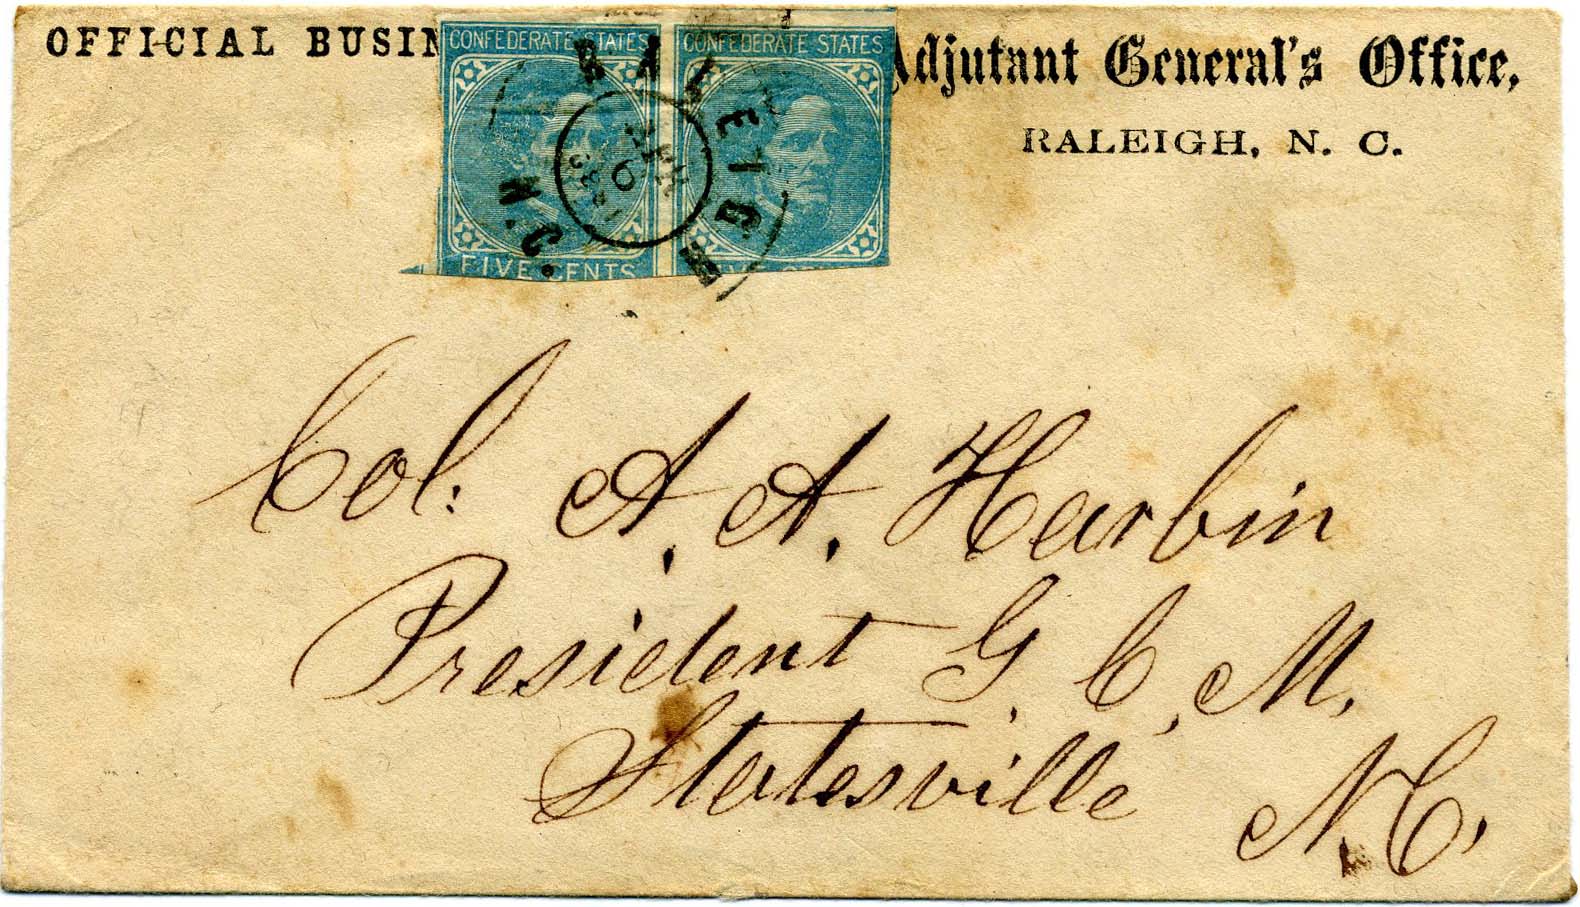 OFFICIAL BUSIN
Adjutant General's Office,
RALEIGH, N. C.
CONFEDERATE STATES
CONFEDERATE STATES
RALEIGH
N. C.
FIVE CENTS
Col. A. A. Harbin
President G. C. M.
Statesville
N. C.